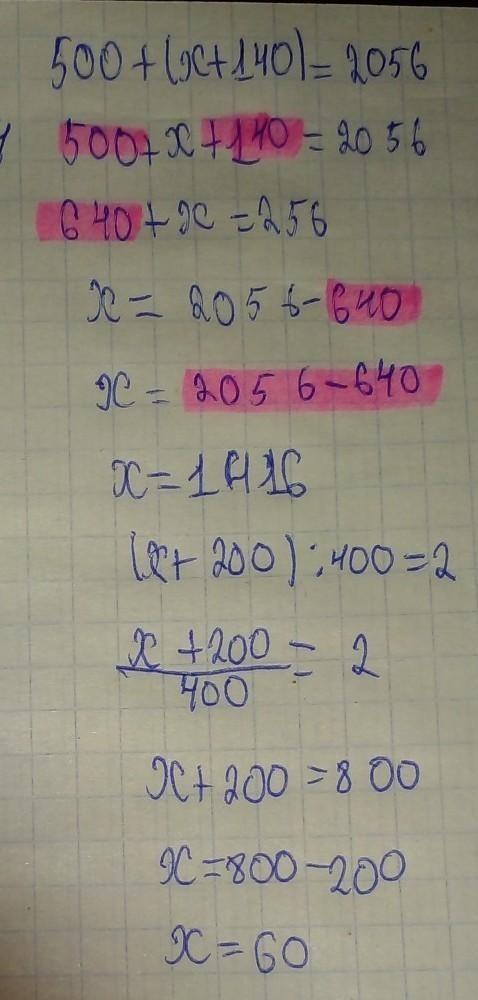 500+(x+140)=2056
500+x+140=2056
640+x=256
x=2056-640
x=2056-640
x=1416
(x+200):400=2
x+200
400
= 2
x+200=800
x=800-200
x=60